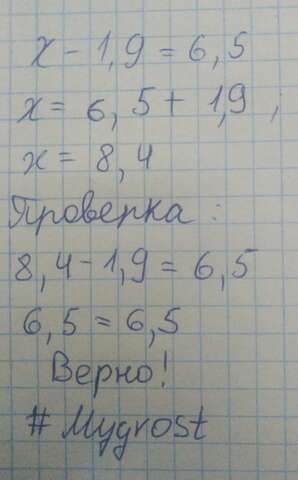 x - 1,9 = 6,5
x = 6,5 + 1,9 ;
x = 8,4
Проверка :
8,4 - 1,9 = 6,5
6,5 = 6,5
Верно!
# Mygrost